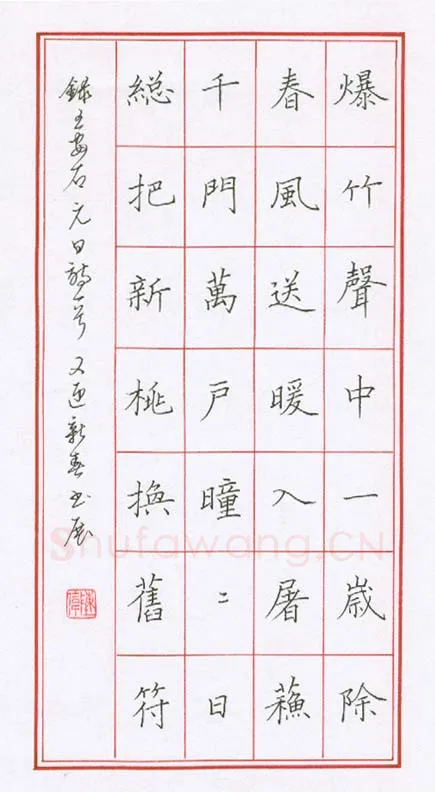 爆竹聲中一歲除
春風送暖入屠蘇
千門萬戶曈〻日
總把新桃換舊符
錄王安石元日詩一首 又迎新春書展
Shufawang.CN